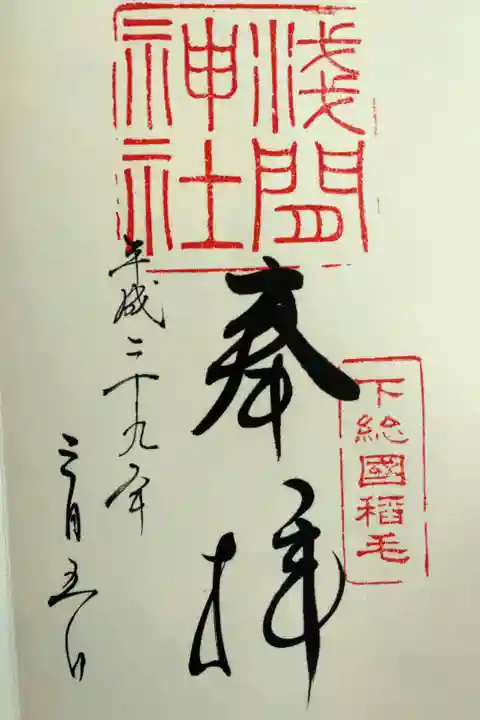 下総國稲毛
浅間
神社
奉拝
平成二十九年
三月五日